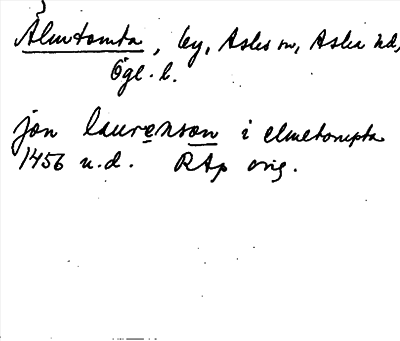 Älmtomta, by, Asks sn, Aska hd,
Ögl. l.
jon laurenson i elmetompta
1456 u.d. RAp orig.